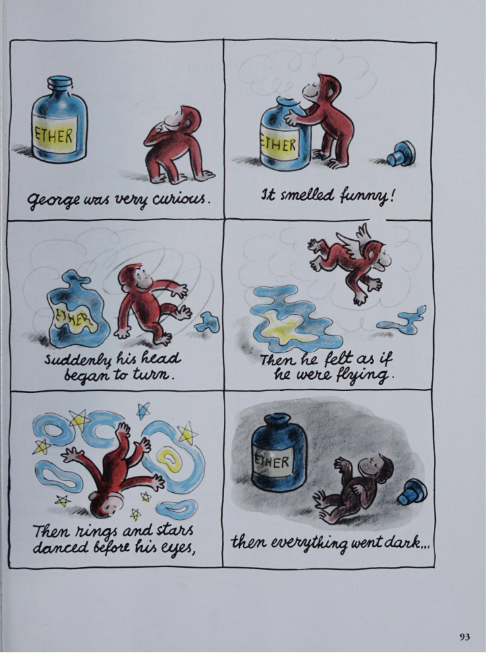 ETHER
George was very curious.
ETHER
It smelled funny!
ETHER
Suddenly his head
began to turn.
Then he felt as if
he were flying.
Then rings and stars
danced before his eyes,
ETHER
then everything went dark...
93